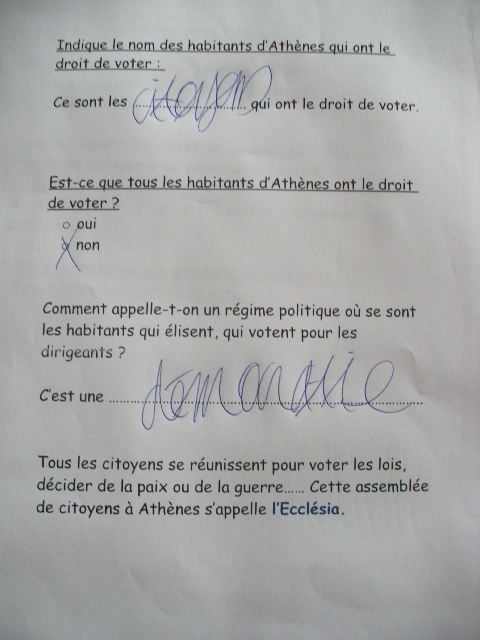 Indique le nom des habitants d'Athènes qui ont le
droit de voter :
Ce sont les citoyen qui ont le droit de voter.
Est-ce que tous les habitants d'Athènes ont le droit
de voter ?
oui
non
Comment appelle-t-on un régime politique où se sont
les habitants qui élisent, qui votent pour les
dirigeants ?
C'est une ..........
Tous les citoyens se réunissent pour voter les lois,
décider de la paix ou de la guerre...... Cette assemblée
de citoyens à Athènes s'appelle l'Ecclésia.